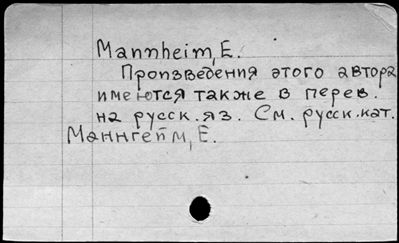 Mannheim, E.
Произведения этого автора
имеются также в перев.
на русск. яз. См. русск. кат.
Маннгейм, Е.